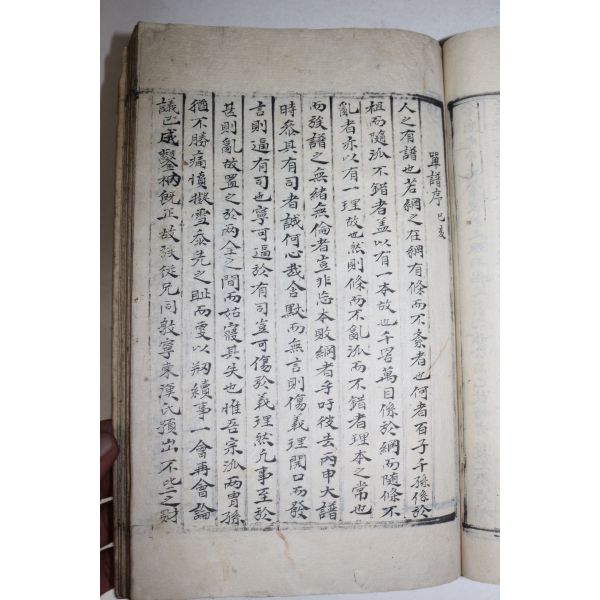 單譜序 己亥
人之有譜也若網之在綱有條而不紊者也何者百子千孫係於
祖而隨派不錯者盖以有一本故也千罟萬目係於綱而隨條不
亂者亦以有一理故也然則條而不亂派而不錯者理本之常也
而發譜之無緒無倫者豈非忘本敗綱者乎吁彼去丙申大譜
時叅具有司者誠何心哉含默而無言則傷義理開口而發
言則逼有司也寧可逼於有司豈可傷於義理然凡事至於
甚則亂故置之於兩全之間而姑寢其失也惟吾宗派兩胄孫
猶不勝痛憤擬雪忝先之耻而更以刱續事一會再會論
議已成鑿枘旣正故族從兄同敦寧東漢氏預出不些之財